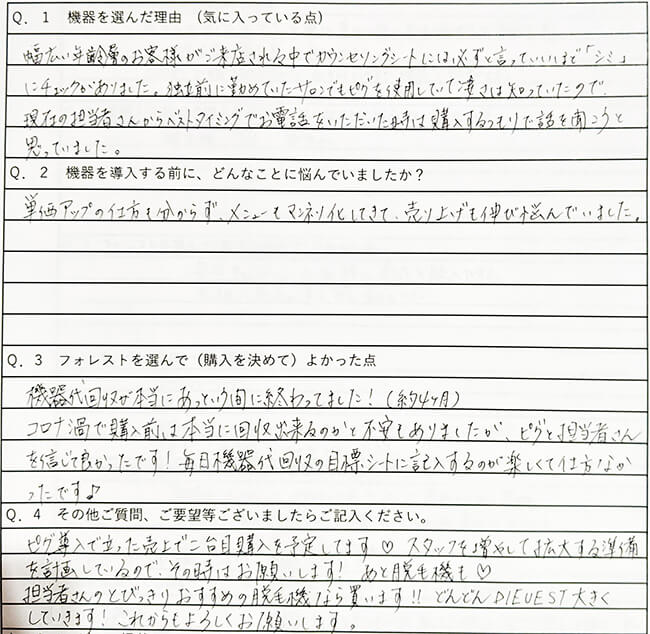 Q. 1 機器を選んだ理由 (気に入っている点)
幅広い年齢層のお客様がご来店される中でカウンセリングシートには必ずと言っていいほど「シミ」
にチェックがありました。独立前に勤めていたサロンでもピグを使用していて凄さは知っていたので、
現在の担当者さんからベストタイミングでお電話をいただいた時は購入するつもりで話を聞こうと
思っていました。
Q. 2 機器を導入する前に、どんなことに悩んでいましたか?
単価アップの仕方も分からず、メニューもマンネリ化してきて、売り上げも伸び悩んでいました。
Q. 3 フォレストを選んで(購入を決めて)よかった点
機器代回収が本当にあっという間に終わってました!(約4ヶ月)
コロナ渦で購入前は本当に回収出来るのかと不安もありましたが、ピグと担当者さん
を信じて良かったです!毎日機器代回収の目標シートに記入するのが楽しくて仕方なか
ったです♪
Q. 4 その他ご質問、ご要望等ございましたらご記入ください。
ピグ導入で立った売上で二台目購入を予定してます♡ スタッフを増やして拡大する準備
を計画しているので、その時はお願いします! あと脱毛機も♡
担当者さんのとびっきりおすすめの脱毛機なら買います!! どんどんDIEUEST大きく
していきます!これからもよろしくお願いします。